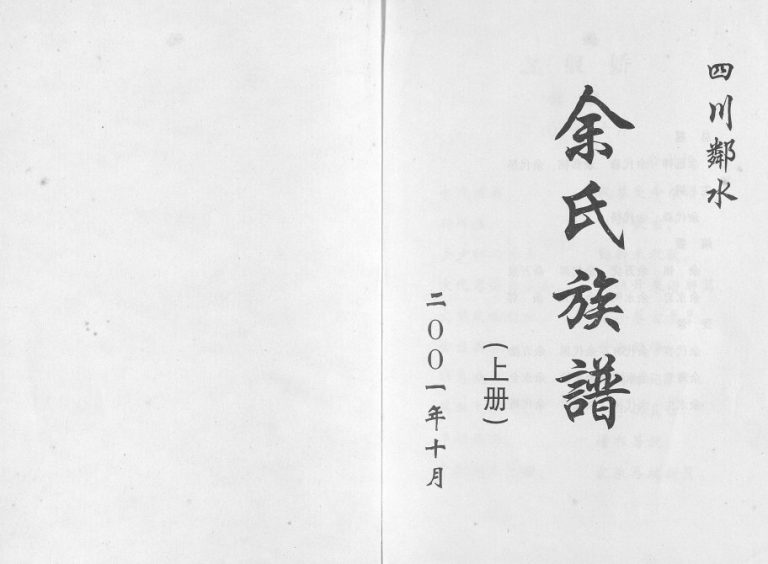 四川鄰水
余氏族譜
(上册)
二00一年十月